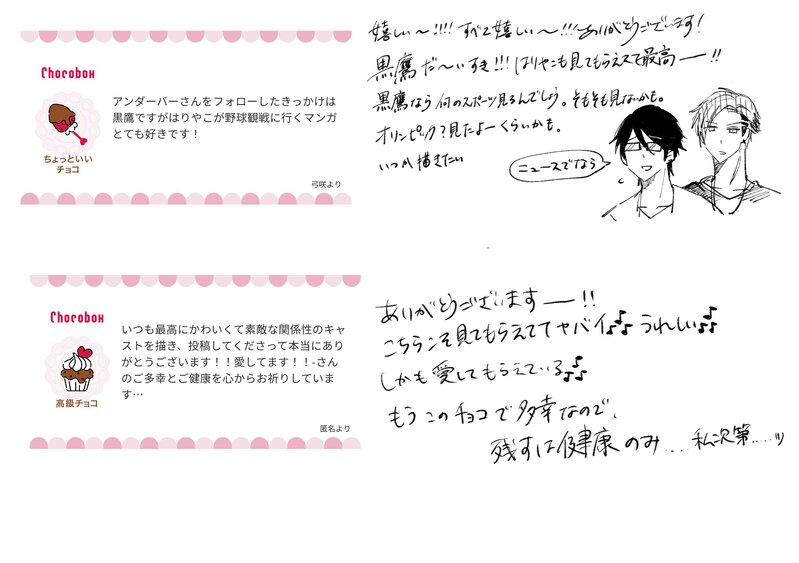 Chocobox
アンダーバーさんをフォローしたきっかけは
黒鷹ですがはりやこが野球観戦に行くマンガ
とても好きです！
ちょっといい
チョコ
弓咲より
嬉しい〜!!!! すべて嬉しい〜!!! ありがとうございます!
黒鷹 だ〜いすき!!! はりやこも見てもらえてて最高ー!!
黒鷹なら何のスポーツ見るんでしょう。そもそも見ないかも。
オリンピック？見たよーくらいかも。
いつか描きたい
ニュースでなら
Chocobox
いつも最高にかわいくて素敵な関係性のキャ
ストを描き、投稿してくださって本当にあり
がとうございます！！愛してます！！-さん
のご多幸とご健康を心からお祈りしていま
す…
高級チョコ
匿名より
ありがとうございますー!!
こちらこそ見てもらえててヤバイ♫ うれしい♫
しかも愛してもらえている♫
もうこのチョコで多幸なので、
残すは健康のみ...私次第.....ッ